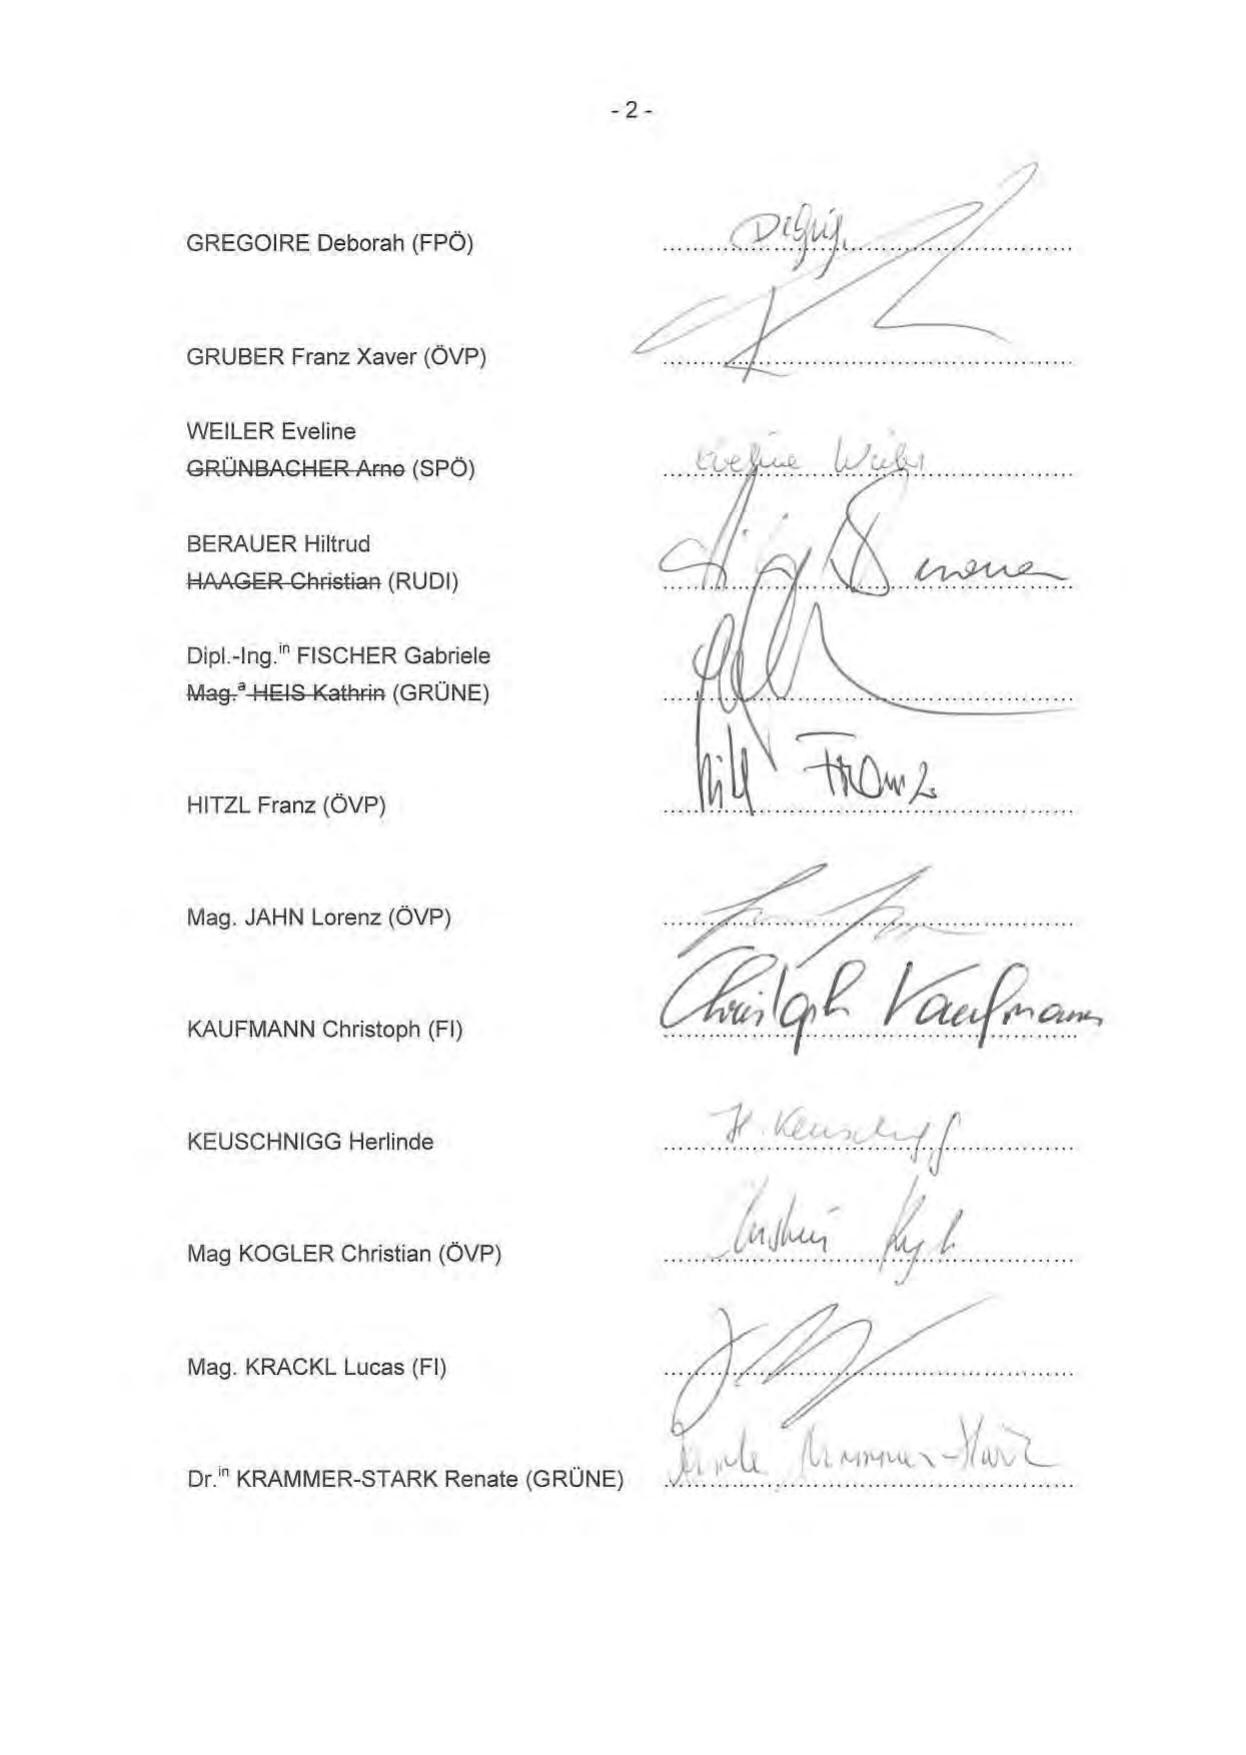 - 2 -
GREGOIRE Deborah (FPÖ)
GRUBER Franz Xaver (ÖVP)
WEILER Eveline
GRÜNBACHER Arno (SPÖ) Eveline Weiler
BERAUER Hiltrud
HAAGER Christian (RUDI)
Dipl.-Ing.in FISCHER Gabriele
Mag.a HEIS Kathrin (GRÜNE)
HITZL Franz (ÖVP) Franz
Mag. JAHN Lorenz (ÖVP)
KAUFMANN Christoph (FI) Christoph Kaufmann
KEUSCHNIGG Herlinde H. Keuschnigg
Mag KOGLER Christian (ÖVP)
Mag. KRACKL Lucas (FI)
Dr.in KRAMMER-STARK Renate (GRÜNE) Renate Krammer-Stark